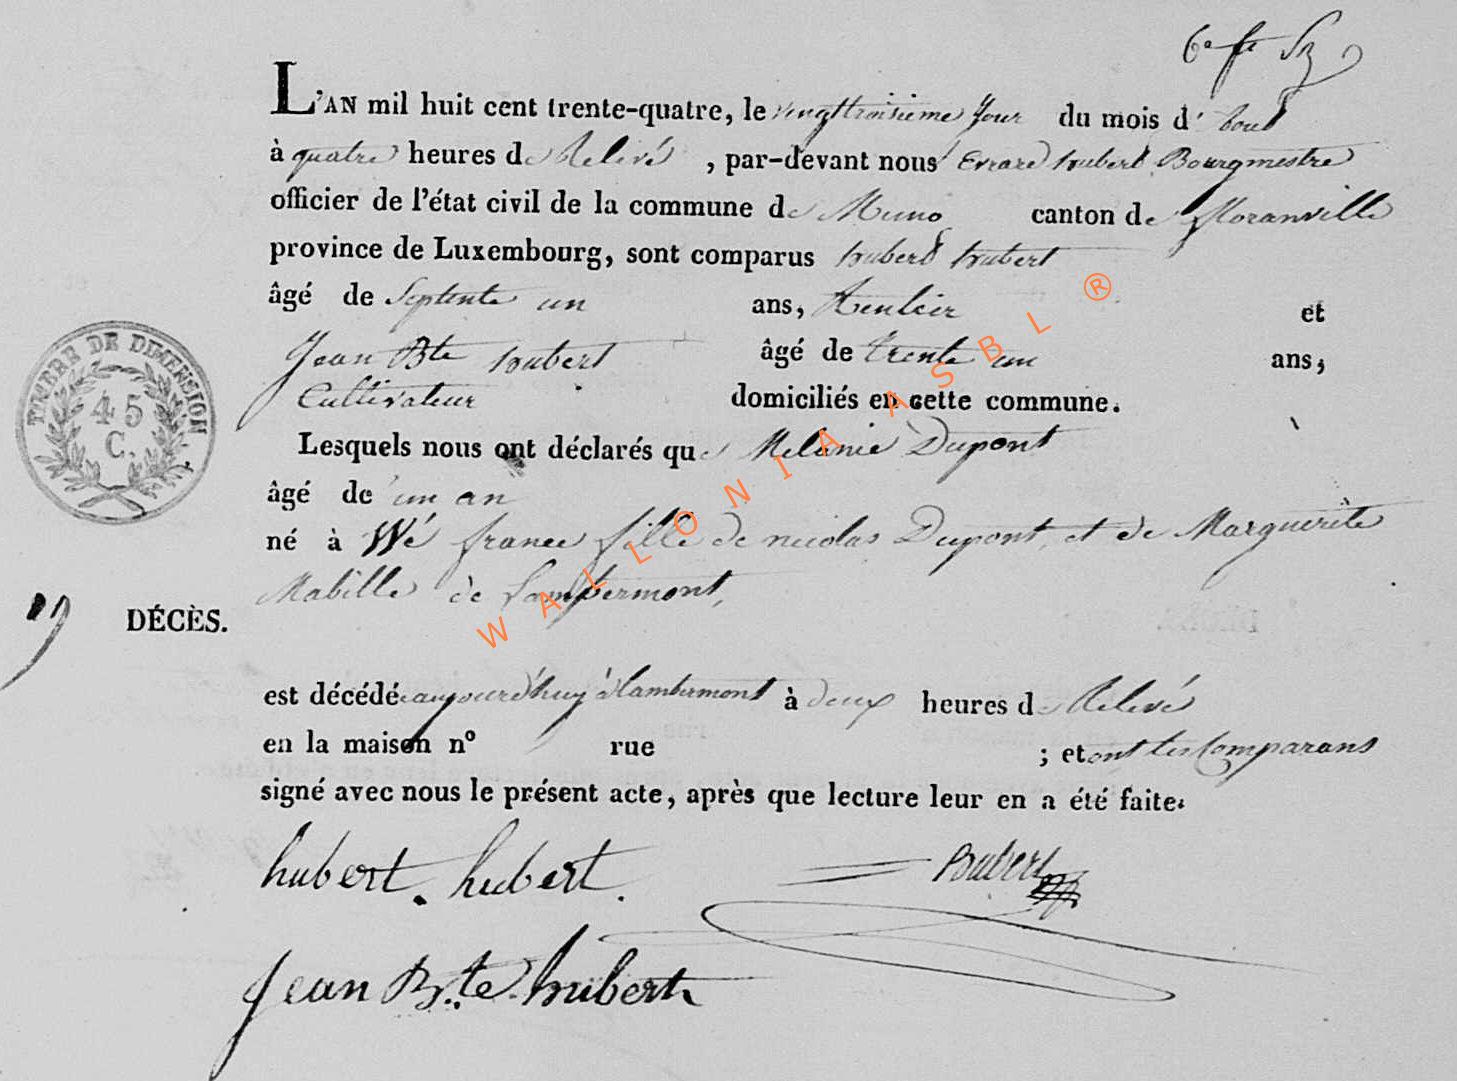 6e f Sz
L'AN mil huit cent trente-quatre, le vingttroisieme Jour du mois d'Aout
à quatre heures de Relevé, par-devant nous Evrard hubert Bourgmestre
officier de l'état civil de la commune de Muno canton de floranville
province de Luxembourg, sont comparus hubert hubert
âgé de Septente un ans, Rentier et
Jean Bte hubert âgé de trente un ans,
Cultivateur domiciliés en cette commune.
Lesquels nous ont déclarés que Melanie Dupont
âgé de un an
né à Wé france fille de nicolas Dupont, et de Marguerite
Mabille de Lambermont,
DÉCÈS.
est décédée aujourd'huy à lambermont à deux heures de Relevé
en la maison nº rue ; et ont les Comparans
signé avec nous le présent acte, après que lecture leur en a été faite.
hubert. hubert.
hubert
Jean B.te hubert
TIMBRE DE DIMENSION
45
C.
WALLONIA ASBL ®